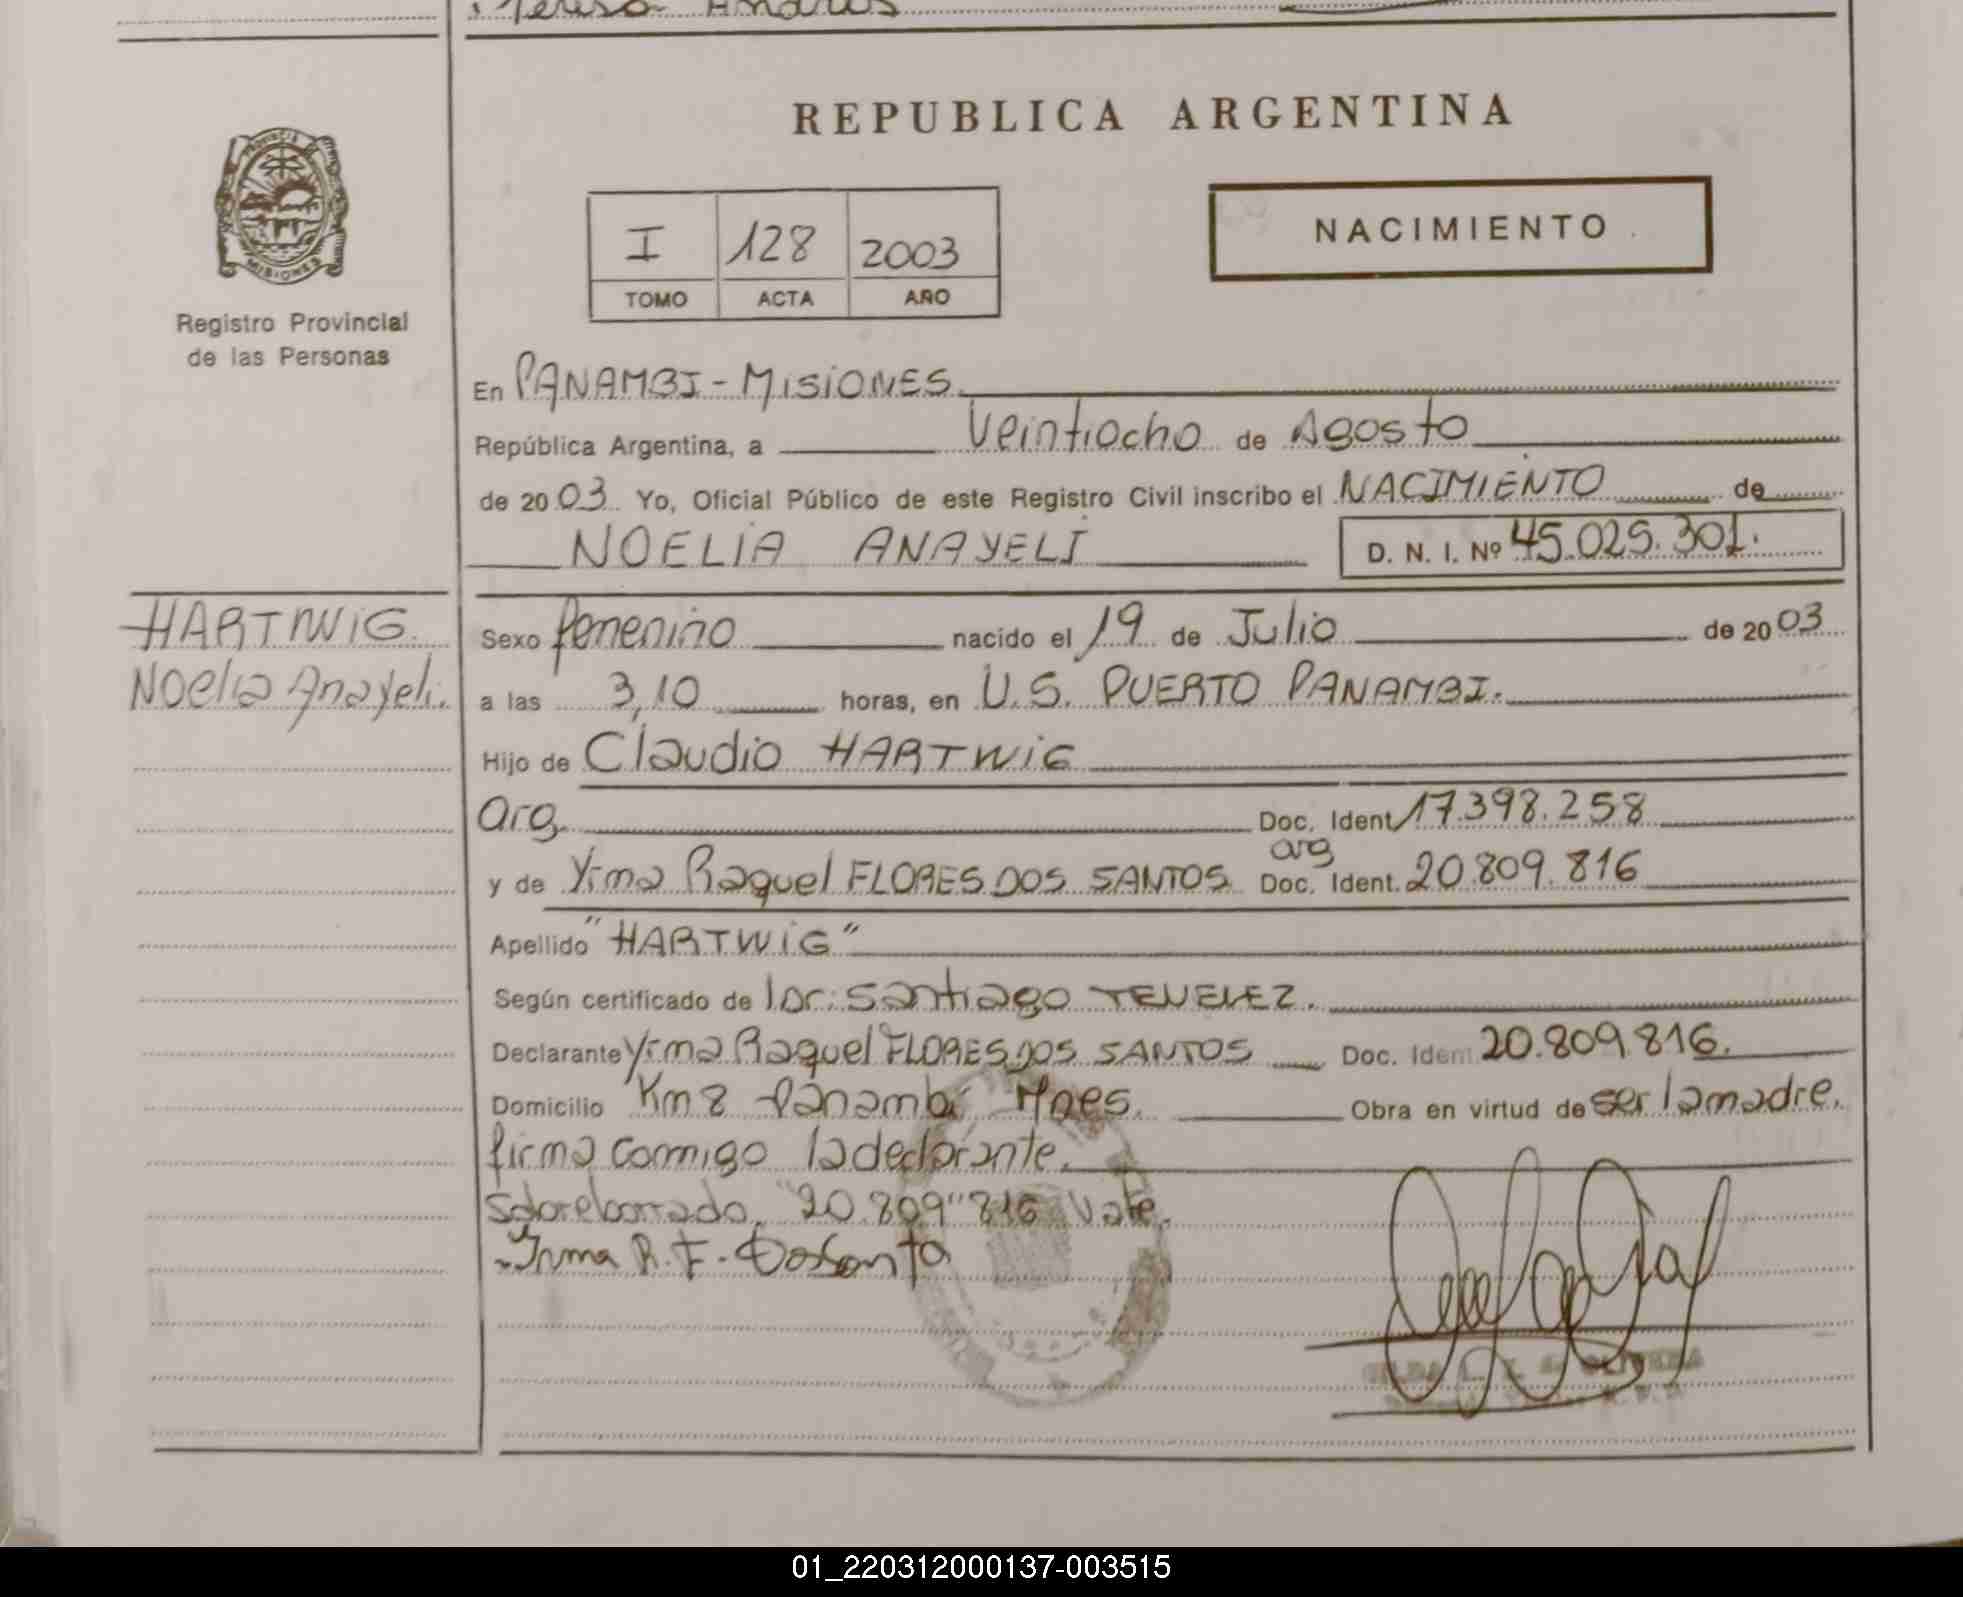 Teresa Andres
REPUBLICA ARGENTINA
PROVINCIA DE
MISIONES
Registro Provincial
de las Personas
I 128 2003
TOMO ACTA AÑO
NACIMIENTO
En PANAMBI - MISIONES.
República Argentina, a Veintiocho de Agosto
de 2003 Yo, Oficial Público de este Registro Civil inscribo el NACIMIENTO de
NOELIA ANAYELI D. N. I. Nº 45.025.301.
HARTWIG
Noelia Anayeli.
Sexo femenino nacido el 19 de Julio de 2003
a las 3,10 horas, en U.S. PUERTO PANAMBI.
Hijo de Claudio HARTWIG
arg. Doc. Ident 17.398.258
arg
y de Yrma Raquel FLORES DOS SANTOS Doc. Ident. 20.809.816
Apellido "HARTWIG"
Según certificado de Dr: Santiago TENELEZ.
Declarante Yrma Raquel FLORES DOS SANTOS Doc. Ident 20.809.816.
Domicilio Km 8 Panambí Mnes. Obra en virtud de ser la madre.
firma conmigo la declarante.
Sobreborrado "20.809" 816 Vale.
Irma R. F. Dosanta
01_220312000137-003515